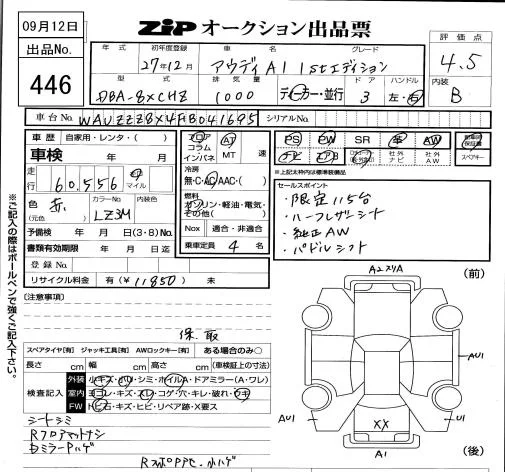 09月12日
ZiP オークション出品票
出品No.
446
評価点
4.5
内装
B
年式 初年度登録 車名 グレード
27年12月 アウディA1 1stエディション
型式 排気量 ドア ハンドル
DBA-8XCHZ 1000 ディーラー・並行 3 左・右
車台No. WAUZZZ8X4FB041695 シリアルNo.
車歴 自家用・レンタ・( )
車検 年 月
走行 60,556 km マイル
色 赤 (元色) カラーNo. LZ3M 内装色
予備検 年 月 日(3・8)No.
書類有効期限 年 月 日迄
登録No.
リサイクル料金 有(¥11850) 未
フロア コラム インパネ AT MT 速
冷房 無・C・AC・AAC・( )
燃料 ガソリン・軽油・電気・その他( )
Nox 適合・非適合
乗車定員 4 名
PS PW SR 革 AW
ナビ エアB 社外ナビ 社外AW
新車時保証書
スペアキー
※上記太枠内は標準装備品
セールスポイント
・限定115台
・ハーフレザーシート
・純正AW
・パドルシフト
※ご記入の際はボールペンで強くご記入下さい。
(注意事項)
保、取
スペアタイヤ[有] ジャッキ工具[有] AWロックキー[有] ある場合のみ○
長さ cm 幅 cm 高さ cm (車検証上の寸法)
検査記入
外装 小キズ・凹・シミ・ホイルA・ドアミラー(A・ワレ)
室内 ヨゴレ・キズ・スレ・コゲ・穴・キレ・破れ・ウキ
FW トビ石・キズ・ヒビ・リペア跡・X要ス
シートシミ
Rフロアマットナシ
(前)
A2スリA
AU1
AU1
U1
XX
A1
(後)